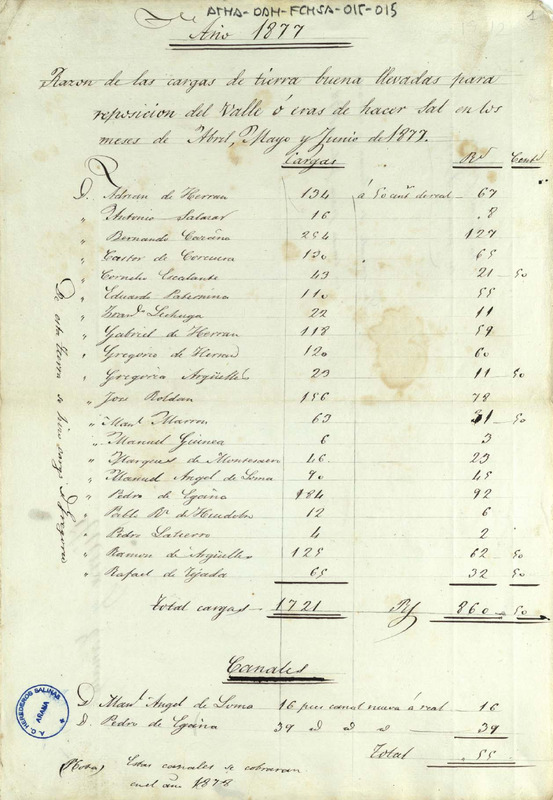 ATHA-DAH-FCHSA-015-015
1
Año 1877
Razon de las cargas de tierra buena llevadas para
reposicion del Valle ó eras de hacer Sal en los
meses de Abril, Mayo y Junio de 1877.
Cargas Rs Cents
D. Adrian de Herran 134 á 50 cents de real 67
" Antonio Salazar 16 8
" Bernardo 254 127
" Castor de Corcuera 130 65
" Cornelio Escalante 43 21 50
" Eduardo Paternina 110 55
" Franco Lechuga 22 11
" Gabriel de Herran 118 59
" Gregorio de Herran 120 60
" Gregoria Argüelles 23 11 50
" Jose Roldan 156 78
" Manl Marron 63 31 50
" Manuel Guinea 6 3
" Marques de Montesacro 46 23
" Manuel Angel de Loma 90 45
" Pedro de Egaña 184 92
" Pablo Rz de Huidobro 12 6
" Pedro Latierro 4 2
" Ramon de Argüelles 125 62 50
" Rafael de Tejada 65 32 50
Total cargas 1721 Rs 860 50
De esta tierra se hizo cargo D. Gregorio
Canales
D. Manl Angel de Loma 16 pies canal nueva á real 16
D. Pedro de Egaña 39 id id id 39
Total 55
(Nota) Estas canales se cobraran
en el año 1878
A.C. HEREDEROS SALINAS
AÑANA